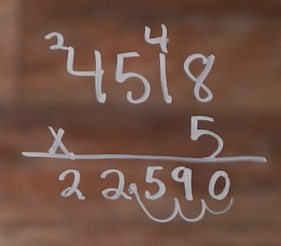 2 4
4518
x 5
22.590